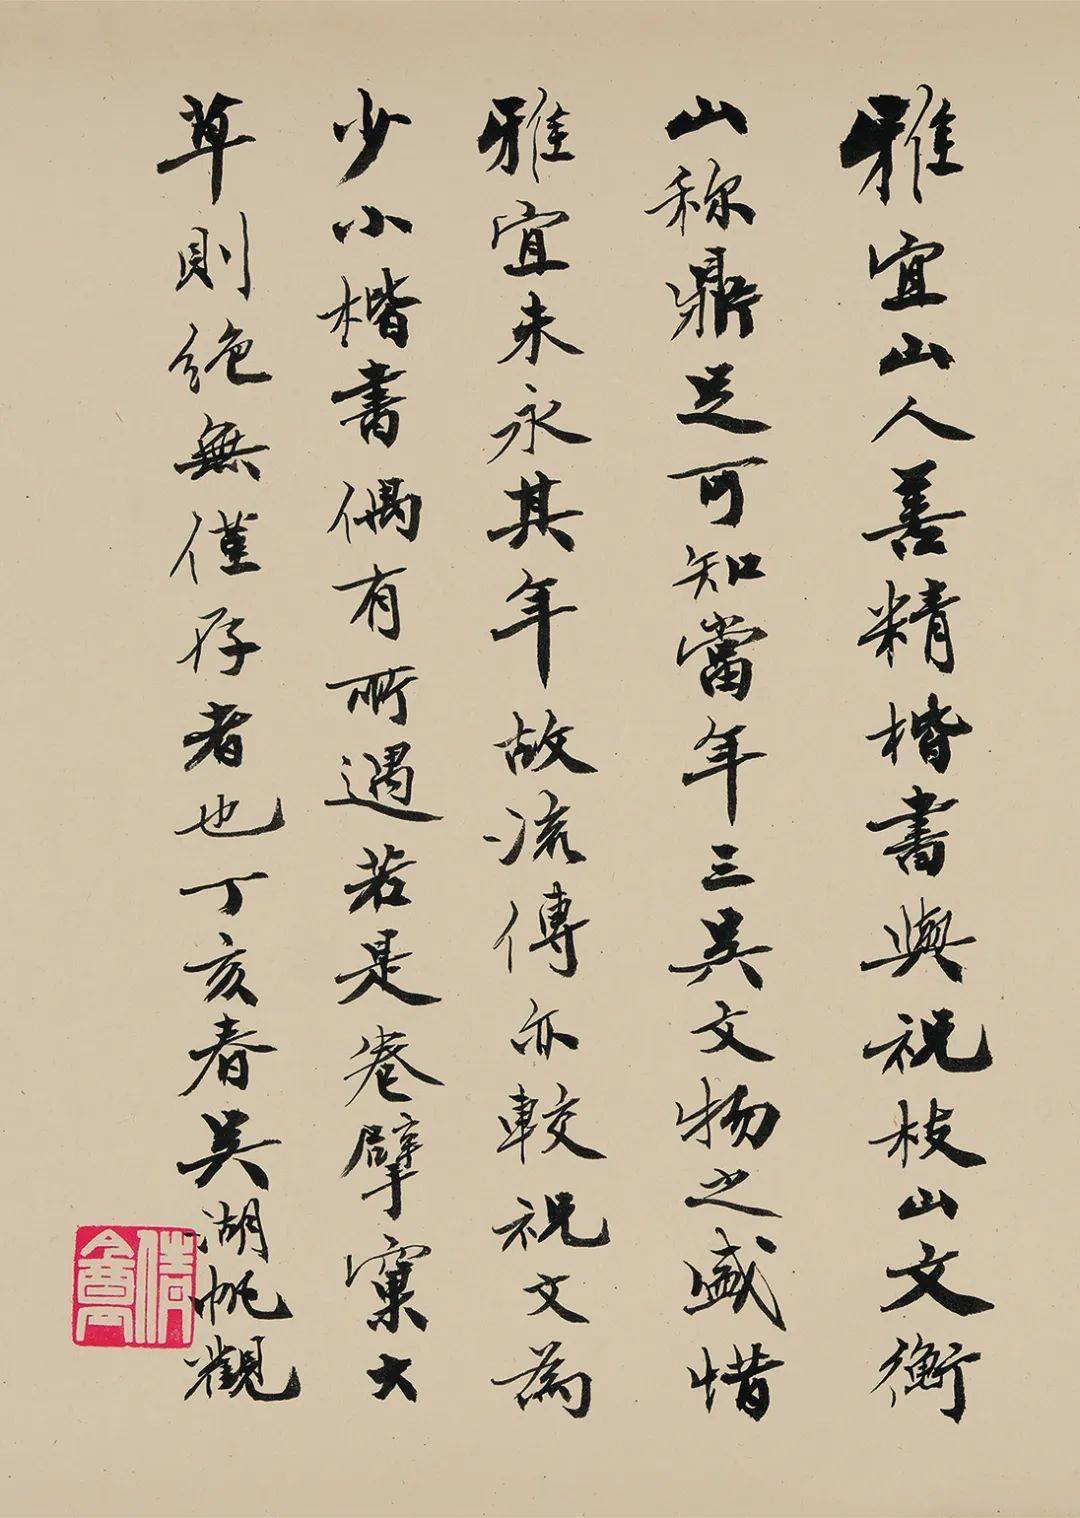 雅宜山人善精楷書與祝枝山文衡
山称鼎足可知當年三吳文物之盛惜
雅宜未永其年故流傳亦較祝文為
少小楷書偶有所遇若是卷擘窠大
草則絕無僅存者也丁亥春吳湖帆觀
倩盦